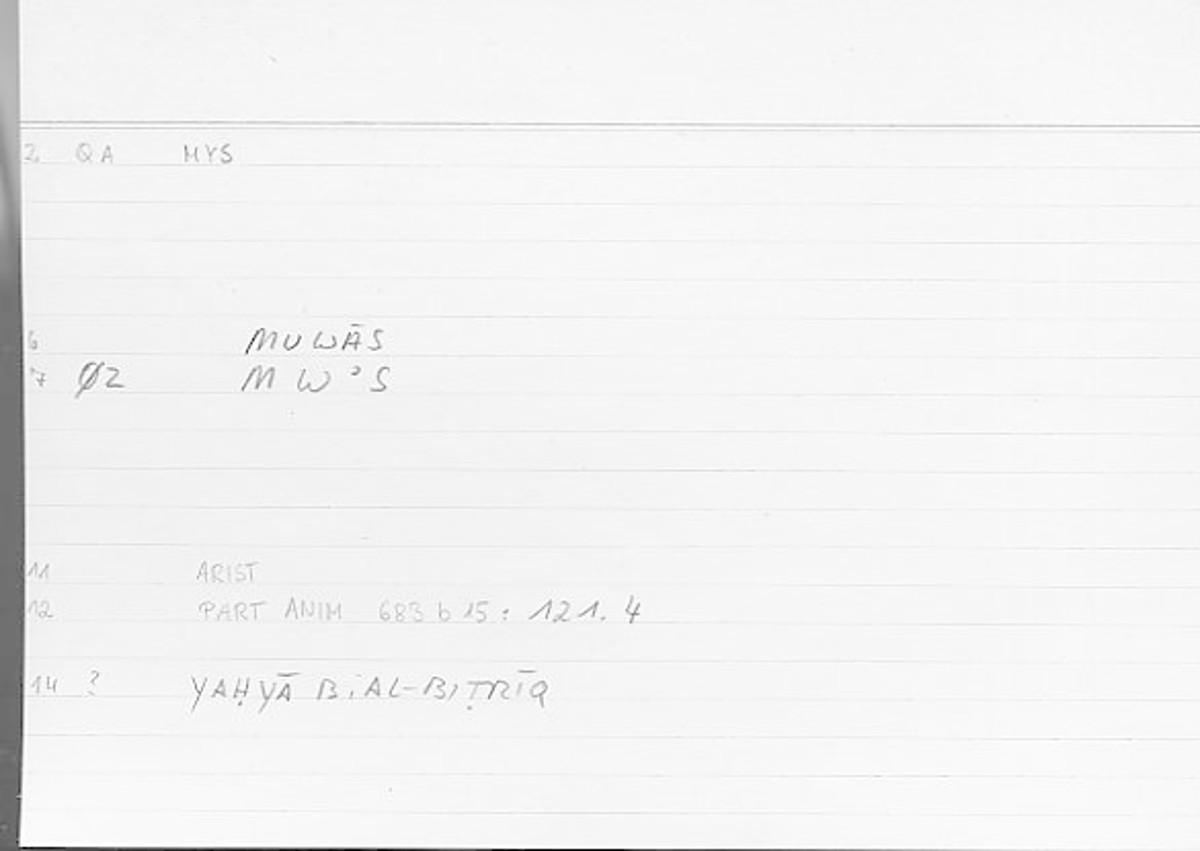 2 QA MYS
6 MUWĀS
7 Ø2 MW'S
11 ARIST
12 PART ANIM 683 b 15 : 121.4
14 ? YAḤYĀ B. AL-BIṬRĪQ